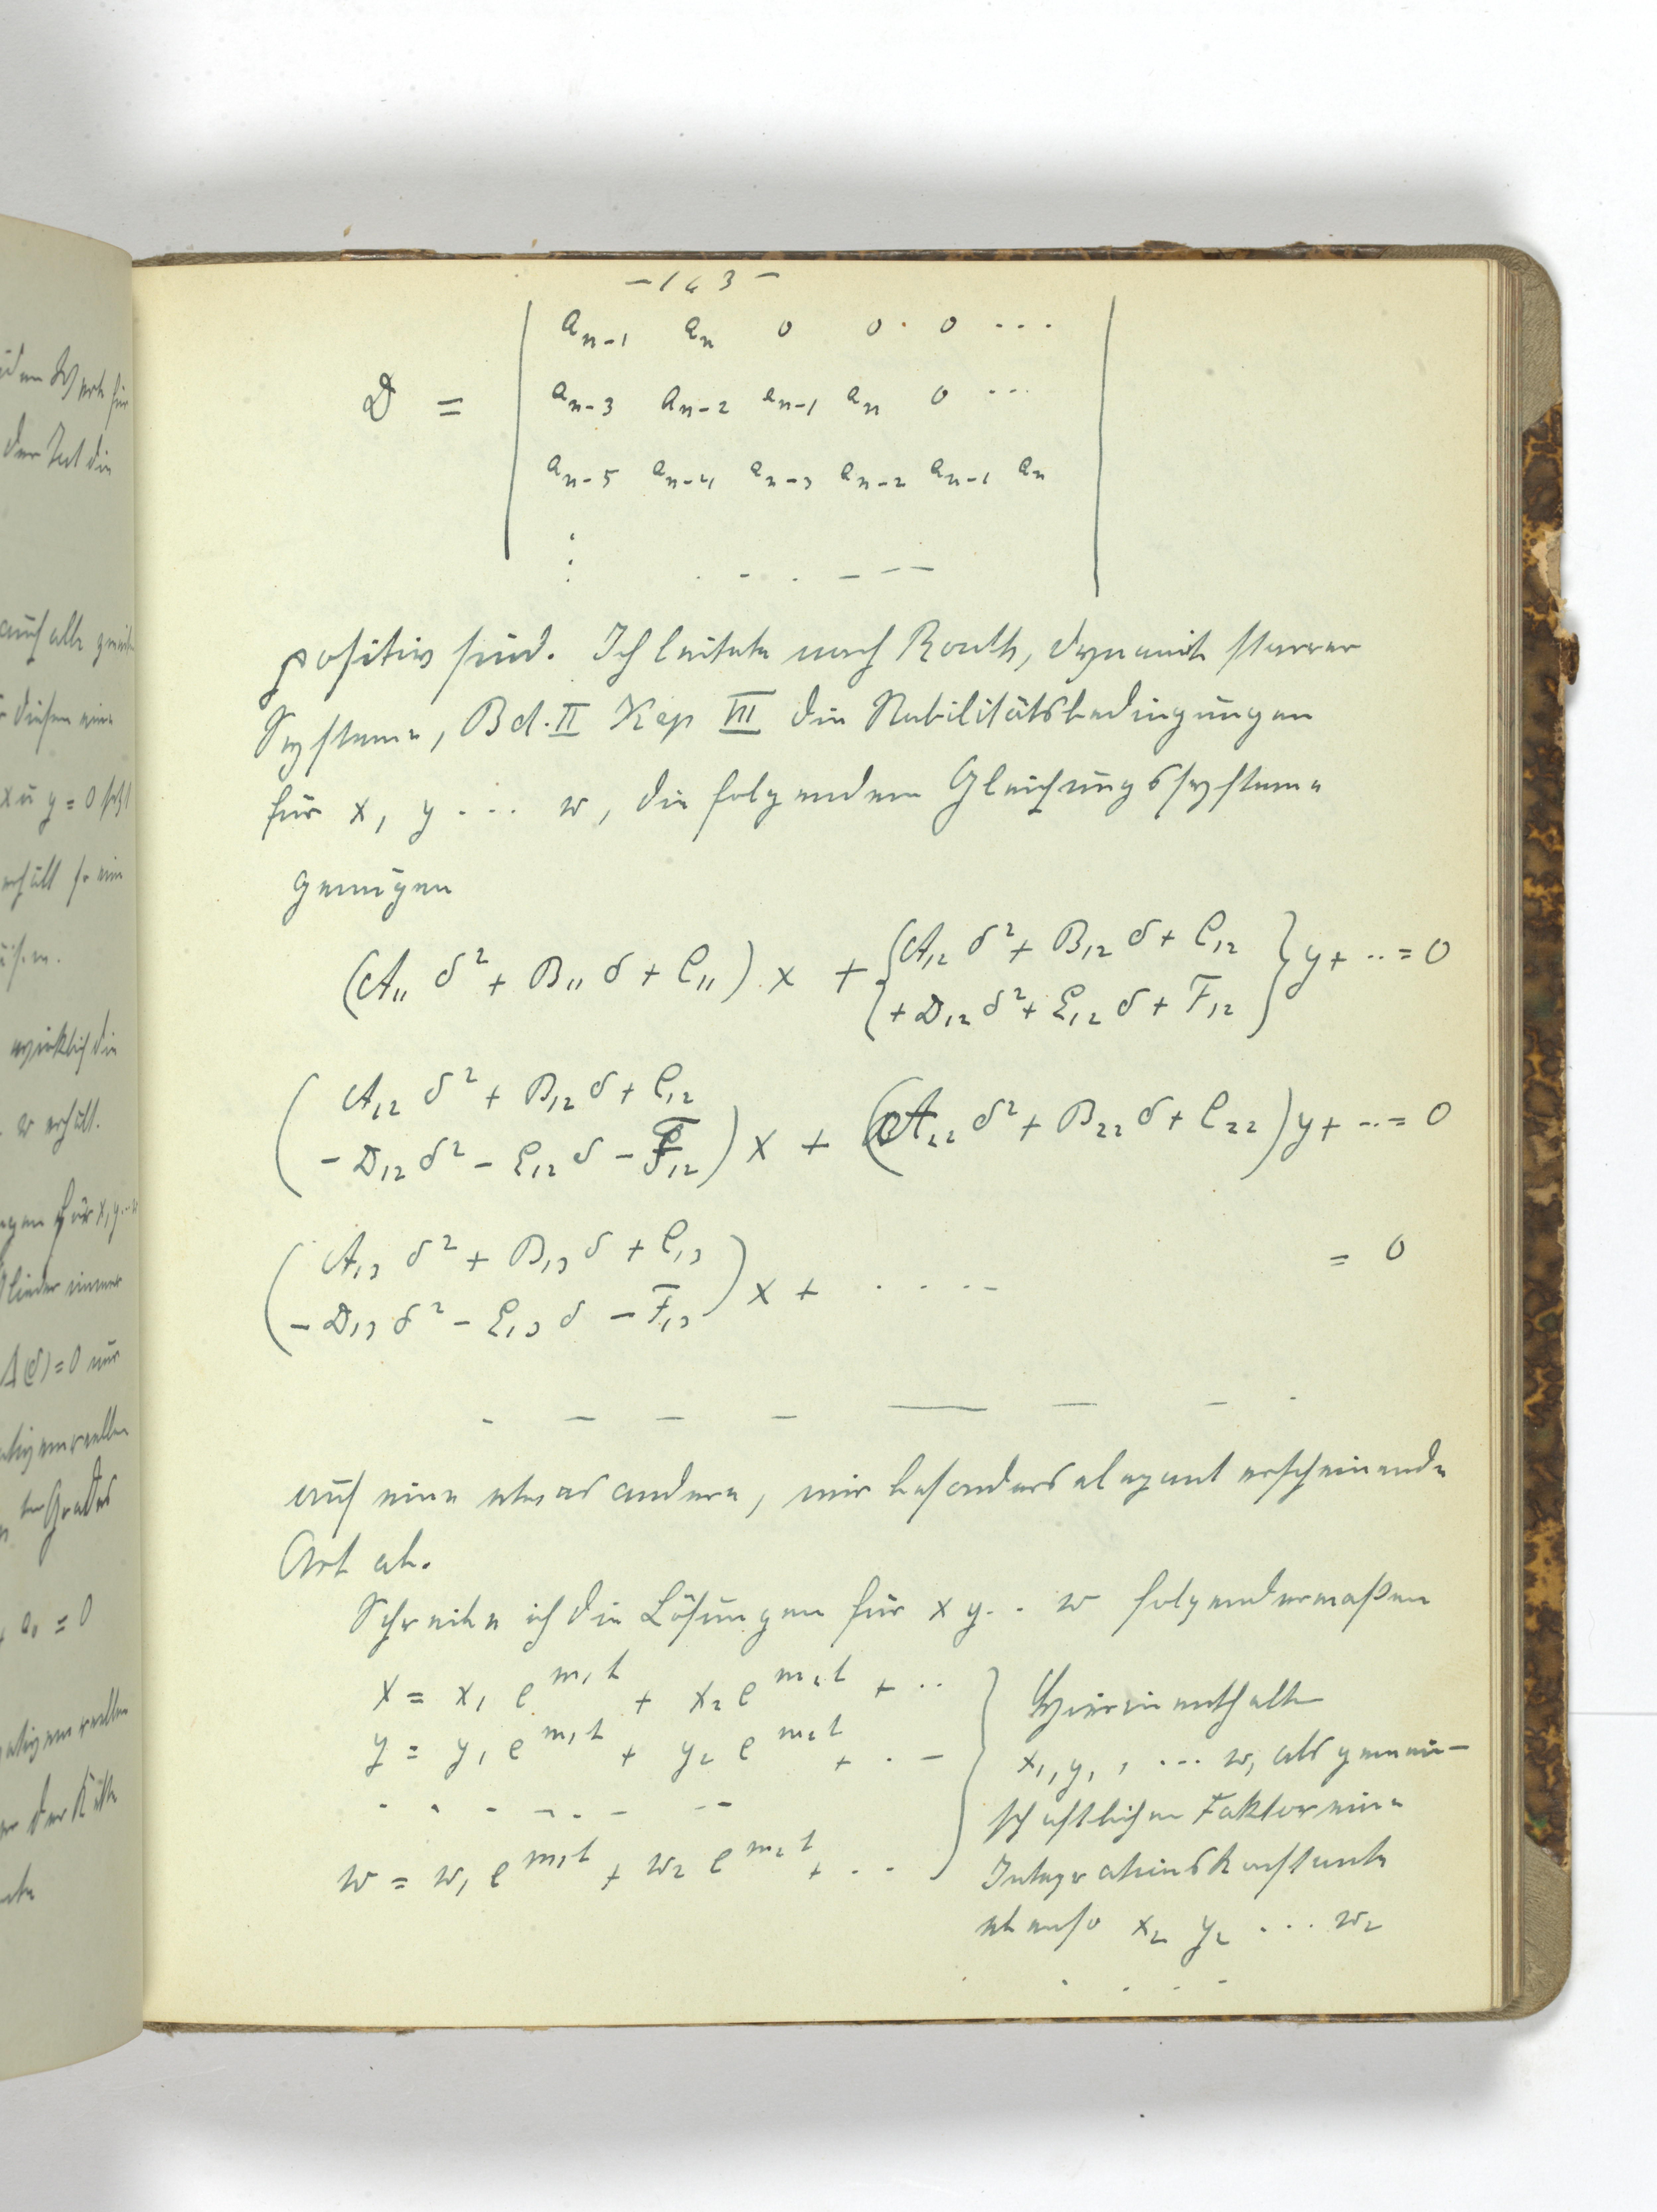 -163-
a_{n-1} a_n 0 0 0 ...
D = a_{n-3} a_{n-2} a_{n-1} a_n 0 ...
a_{n-5} a_{n-4} a_{n-3} a_{n-2} a_{n-1} a_n
positiv sind. Ich leitete nach Routh, Dynamik starrer
Systeme, Bd. II Kap VII die Stabilitätsbedingungen
für x, y ... w, die folgendem Gleichungssysteme
genügen
(A₁₁ δ² + B₁₁ δ + C₁₁) x + {A₁₂ δ² + B₁₂ δ + C₁₂
+ D₁₂ δ² + E₁₂ δ + F₁₂} y + .. = 0
(A₁₂ δ² + B₁₂ δ + C₁₂
- D₁₂ δ² - E₁₂ δ - F₁₂) x + (A₂₂ δ² + B₂₂ δ + C₂₂) y + ... = 0
(A₁₃ δ² + B₁₃ δ + C₁₃
- D₁₃ δ² - E₁₃ δ - F₁₃) x + ..... = 0
auf eine etwas andere, mir besonders elegant erscheinende
Art ab.
Schreibe ich die Lösungen für x y .. w folgendermaßen
x = x₁ e^{m₁t} + x₂ e^{m₂t} + ..
y = y₁ e^{m₁t} + y₂ e^{m₂t} + . -
w = w₁ e^{m₁t} + w₂ e^{m₂t} + ..
Hierin enthalte
x₁, y₁, ... w₁ als gemein-
schaftlichen Faktor eine
Integrationskonstante
ebenso x₂ y₂ ... w₂